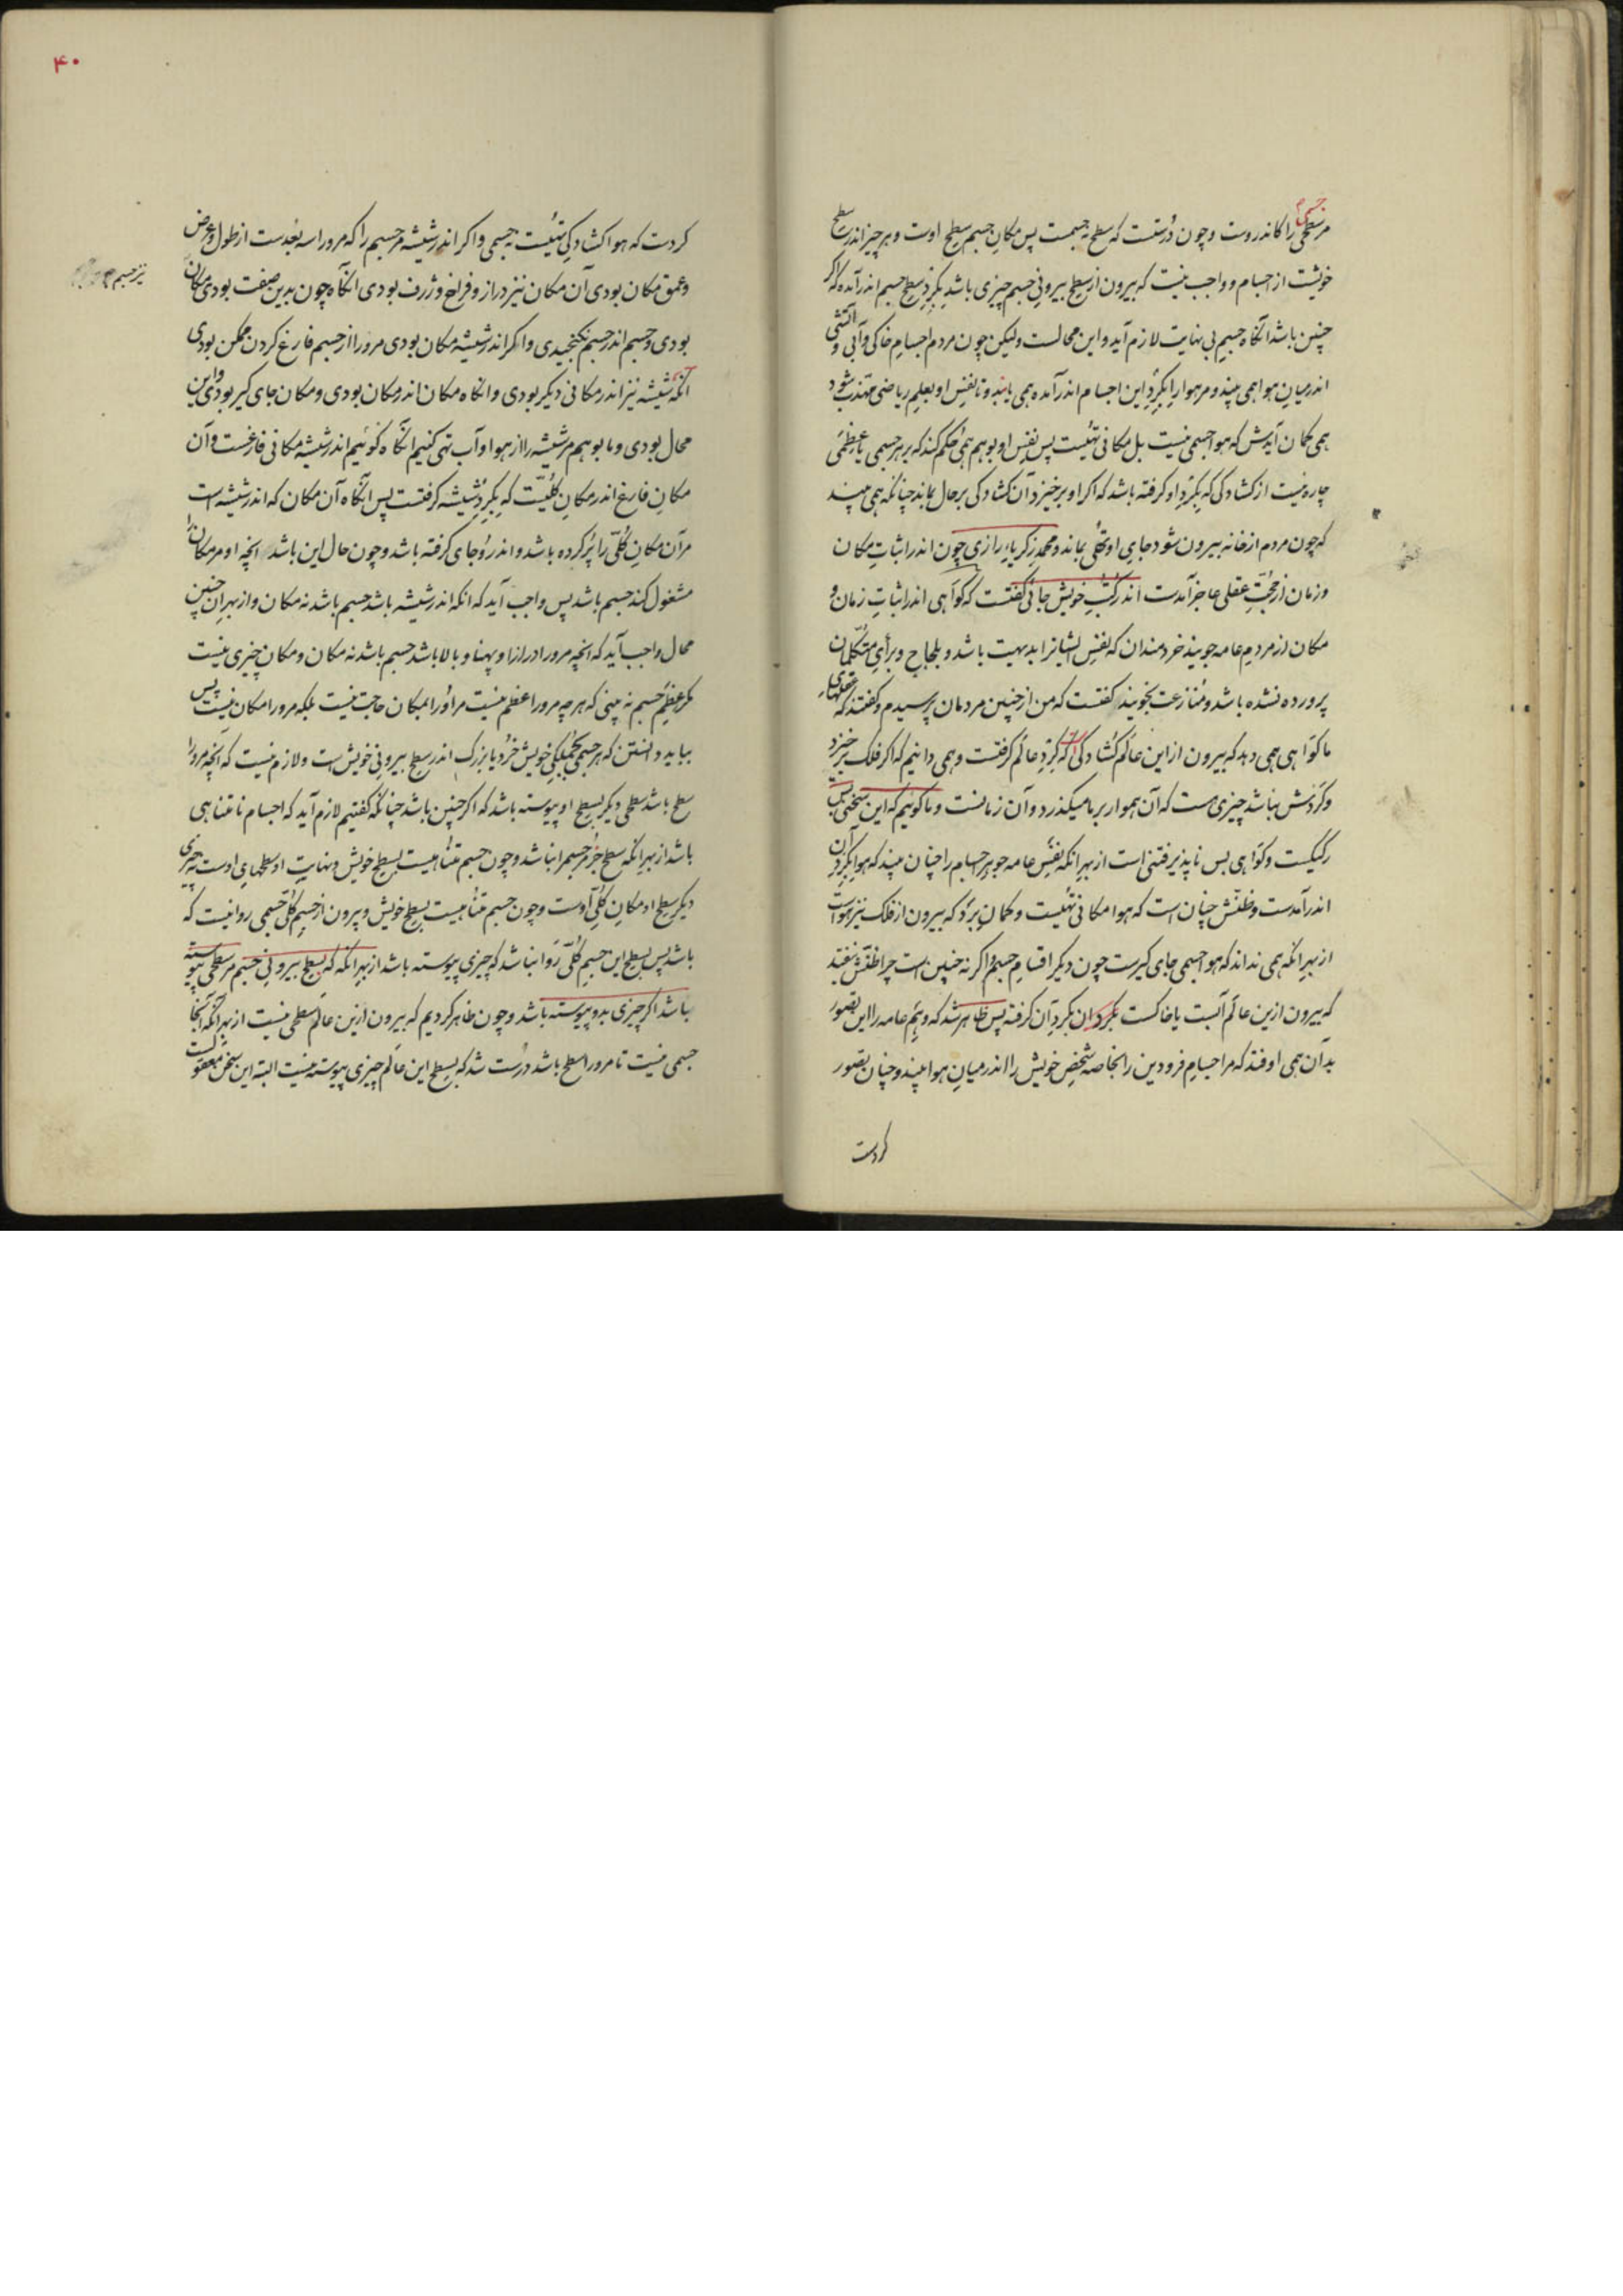 مر سطحی جسمی را کاندروست و چون درستست که سطح نه جسمست پس مکان جسم سطح اوست و هر چیز اندر سطح
خویشست از اجسام و واجب نیست که بیرون از سطح بیرونی جسم چیزی باشد بگرد سطح جسم اندر آمده که اگر
چنین باشد آنگاه جسم بی نهایت لازم آید و این محالست ولیکن چون مردم اجسام خاکی و آبی و آتشی
اندر میان هوا همی بیند و مر هوا را بگرد این اجسام اندر آمده همی یابند و تا نفس او بعلم ریاضی مهذب شود
همی گمان آیدش که هوا جسمی نیست بل مکانی تهیست پس نفس او بوهم همی حکم کند که بر هر جسمی با عظمی
چاره نیست از کشادگی که بگرد او گرفته باشد که اگر او برخیزد آن کشادگی بر حال بماند چنانکه همی بیند
که چون مردم از خانه بیرون شود جای او تهی بماند و محمد زکریاء رازی چون اندر اثبات مکان
و زمان از حجت عقلی عاجز آمدست اندر کتب خویش جائی گفتست که گواهی اندر اثبات زمان و
مکان از مردم عامه جویند خردمندان که نفس ایشانرا بدیهت باشد و بلجاج و برأی متکلمان
پرورده نشده باشد و منازعت نجویند گفتست که من از چنین مردمان پرسیدم و گفتند که عقلهای
ما گواهی همی دهد که بیرون از این عالم کشادگی است که گرد عالم گرفتست و همی دانیم که اگر فلک برخیزد
و گردش نباشد چیزی هست که آن هموار بر ما میگذرد و آن زمانست و ما گوئیم که این سخنی بس
رکیکست و گواهی بس ناپذیرفتنی است از بهر آنکه نفس عامه جوهر اجسام را چنان بیند که هوا بگرد آن
اندر آمدست و ظنش چنان است که هوا مکانی تهیست و گمان برد که بیرون از فلک نیز هواست
از بهر آنکه همی نداند که هوا جسمی جای گیرست چون دیگر اقسام جسم و اگر نه چنین است چرا ظنش نیفتد
که بیرون ازین عالم آبست یا خاکست بگرد آن گرفته پس ظاهر شد که وهم عامه را این تصور
بدان همی اوفتد که مر اجسام فرودین را بخاصه شخص خویش را اندر میان هوا بیند و چنان تصور
کردست
۴۰
کردست که هوا کشادگی تهیست نه جسمی و اگر اندر شیشه مر جسم را که مرورا سه بعدست از طول و عرض
و عمق مکان بودی آن مکان نیز دراز و فراخ و ژرف بودی آنگاه چون بدین صفت بودی مکان
نیز جسم
بودی و جسم اندر جسم نگنجیدی و اگر اندر شیشه مکان بودی مرورا از جسم فارغ کردن ممکن بودی
آنگه شیشه نیز اندر مکانی دیگر بودی و آنگاه مکان اندر مکان بودی و مکان جای گیر بودی و این
محال بودی و ما بوهم مر شیشه را از هوا و آب تهی کنیم آنگاه گوئیم اندر شیشه مکانی فارغست و آن
مکان فارغ اندر مکان کلیست که بگرد شیشه گرفتست پس آنگاه آن مکان که اندر شیشه است
مر آن مکان کلی را پر کرده باشد و اندر و جای گرفته باشد و چون حال این باشد آنچه او مر مکان را
مشغول کند جسم باشد پس واجب آید که آنکه اندر شیشه باشد جسم باشد نه مکان و از بهر آن چنین
محال واجب آید که آنچه مرورا درازا و پهنا و بالا باشد جسم باشد نه مکان و مکان چیزی نیست
مگر عظم جسم نه بینی که هر چه مرورا عظم نیست مر او را بمکان حاجت نیست بلکه مرورا مکان نیست پس
بباید دانستن که هر جسمی بجملگی خویش خرد یا بزرگ اندر سطح بیرونی خویش است و لازم نیست که آنچه مرورا
سطح باشد سطحی دیگر بسطح او پیوسته باشد که اگر چنین باشد چنانکه گفتیم لازم آید که اجسام نامتناهی
باشد از بهر آنکه سطح جز مر جسم را نباشد و چون جسم متناهیست بسطح خویش و نهایت او سطحهای اوست نه چیزی
دیگر سطح او مکان کلی اوست و چون جسم متناهیست بسطح خویش و بیرون از جسم کلی جسمی روا نیست که
باشد پس بسطح این جسم کلی روا نباشد که چیزی پیوسته باشد از بهر آنکه که بسطح بیرونی جسم مر سطحی پیوسته
باشد اگر چیزی بدو پیوسته باشد و چون ظاهر کردیم که بیرون ازین عالم سطحی نیست از بهر آنکه آنجا
جسمی نیست تا مرورا سطح باشد درست شد که بسطح این عالم چیزی پیوسته نیست البته این سخن معقولست